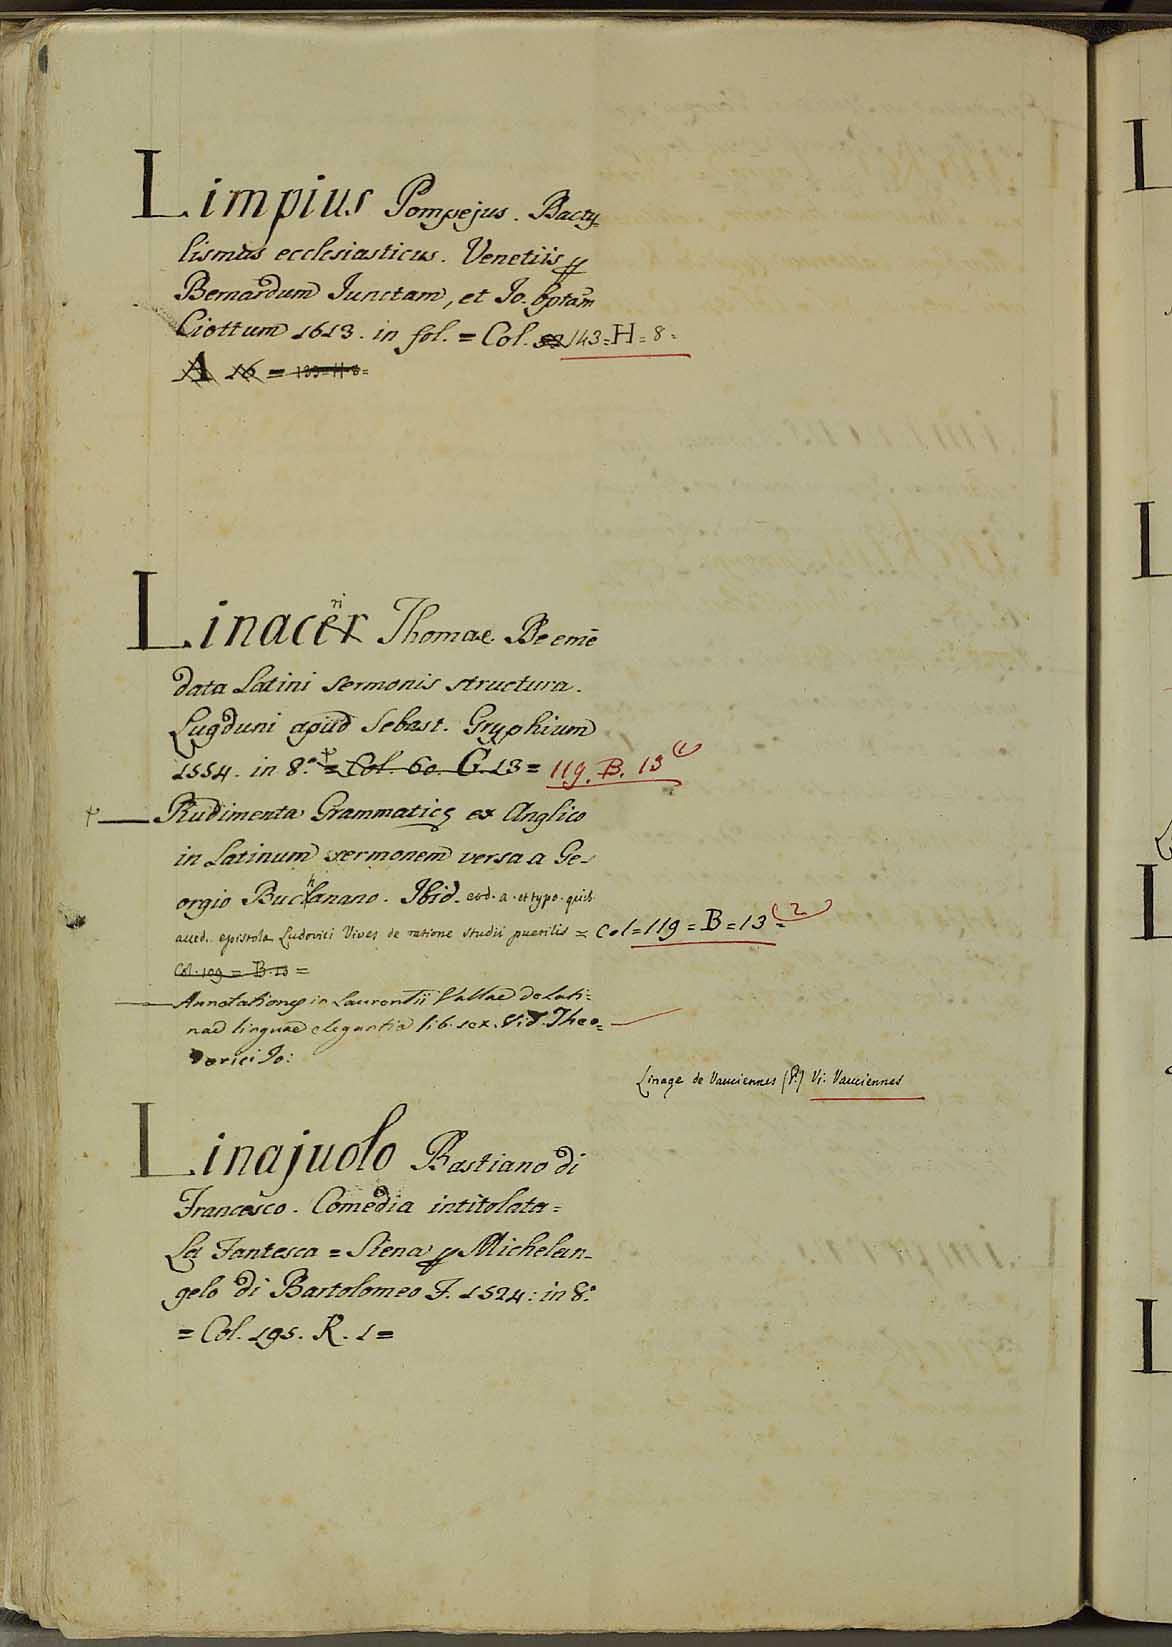 Limpius Pompejus. Bacty=
lismus ecclesiasticus. Venetiis p
Bernardum Junctam, et Jo. bptam
Ciottum 1613. in fol. = Col. 52 143=H=8=
A 16 = 139=H=8=
Linaceri Thomae De emē
data Latini sermonis structura.
Lugduni apud Sebast. Gryphium
1554. in 8.° = Col. 60. G. 13 = 119. B. 13 (1)
Rudimenta Grammatices ex Anglico
in Latinum sermonem versa a Ge-
orgio Buchanano. Ibid. eod. a. et typo. quib.
acced. epistola Ludovici Vives de ratione studii puerilis = Col=119=B=13= (2)
Col. 109 = B. 13 =
Annotationes in Laurentii Vallae de Lati=
nae linguae elegantia lib. sex. Vid. Theo=
dorici Jo:
Linage de Vauciennes (P.) Vi. Vauciennes
Linajuolo Bastiano di
Francesco. Comedia intitolata=
La Fantesca = Siena p Michelan-
gelo di Bartolomeo F. 1524: in 8.°
= Col. 195. R. 1 =